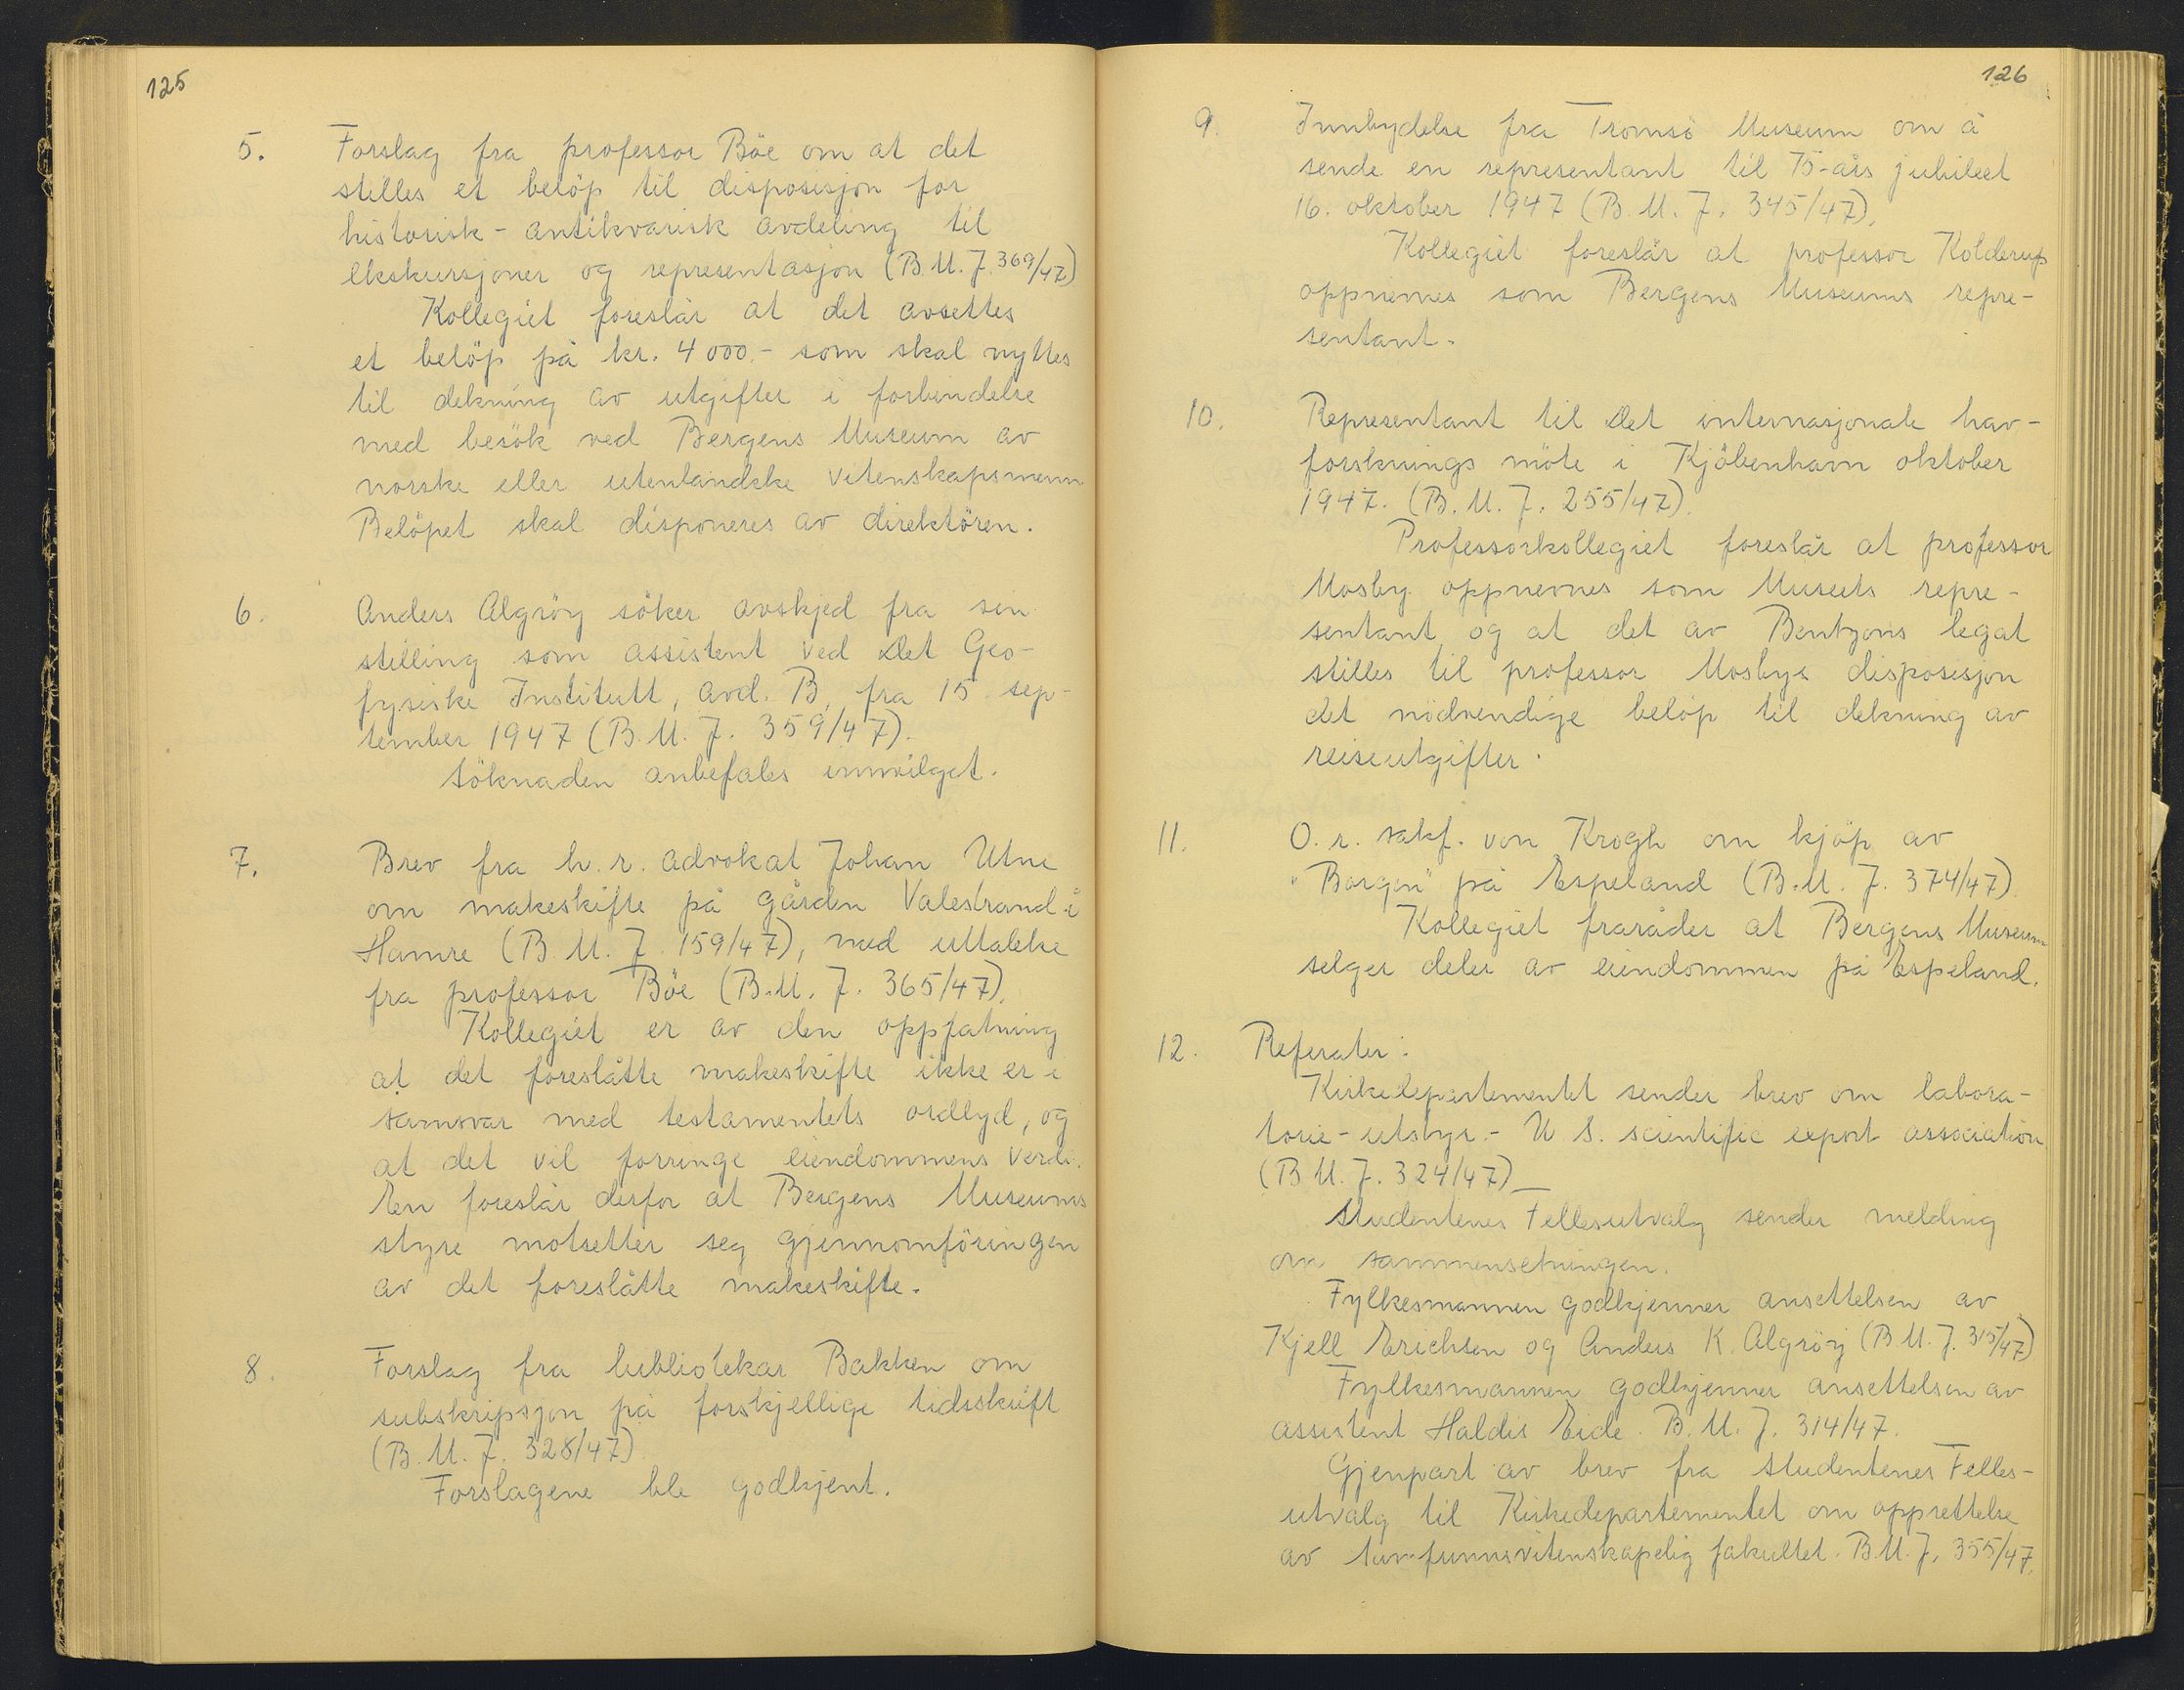 125
5. Forslag fra professor Böe om at det
stilles et belöp til disposisjon for
historisk-antikvarisk avdeling til
ekskursjoner og representasjon (B.M.J. 369/47)
Kollegiet foreslår at det avsettes
et belöp på kr. 4000.- som skal nyttes
til dekning av utgifter i forbindelse
med besök ved Bergens Museum av
norske eller utenlandske vitenskapsmenn
Belöpet skal disponeres av direktören.
6. Anders Algröy söker avskjed fra sin
stilling som assistent ved Det Geo-
fysiske Institutt, avd. B, fra 15. sep-
tember 1947 (B.M.J. 359/47).
Söknaden anbefales innvilget.
7. Brev fra h.r. advokat Johan Utne
om makeskifte på gården Valestrand i
Hamre (B.M.J. 159/47), med uttalelse
fra professor Böe (B.M.J. 365/47).
Kollegiet er av den oppfatning
at det foreslåtte makeskifte ikke er i
samsvar med testamentets ordlyd, og
at det vil forringe eiendommens verdi.
En foreslår derfor at Bergens Museums
styre motsetter seg gjennomföringen
av det foreslåtte makeskifte.
8. Forslag fra bibliotekar Bakken om
subskripsjon på forskjellige tidsskrift
(B.M.J. 328/47)
Forslagene ble godkjent.
126
9. Innbydelse fra Tromsö Museum om å
sende en representant til 75-års jubileet
16. oktober 1947 (B.M.J. 345/47).
Kollegiet foreslår at professor Kolderup
oppnevnes som Bergens Museums repre-
sentant.
10. Representant til Det internasjonale hav-
forsknings möte i Kjöbenhavn oktober
1947. (B.M.J. 255/47).
Professorkollegiet foreslår at professor
Mosby oppnevnes som Museets repre-
sentant og at det av Bentzons legat
stilles til professor Mosbys disposisjon
det nödvendige belöp til dekning av
reiseutgifter.
11. O.r. sakf. von Krogh om kjöp av
"Borgen" på Espeland (B.M.J. 374/47).
Kollegiet fraråder at Bergens Museum
selger deler av eiendommen på Espeland.
12. Referater:
Kirkedepartementet sender brev om labora-
torie-utstyr.- U.S. scientific export association
(B.M.J. 324/47)_
Studentenes Fellesutvalg sender melding
om sammensetningen.
Fylkesmannen godkjenner ansettelsen av
Kjell Erichsen og Anders K. Algröy (B.M.J. 315/47)
Fylkesmannen godkjenner ansettelsen av
assistent Haldis Eide. B.M.J. 314/47.
Gjenpart av brev fra Studentenes Felles-
utvalg til Kirkedepartementet om opprettelse
av fakultet. B.M.J. 355/47.